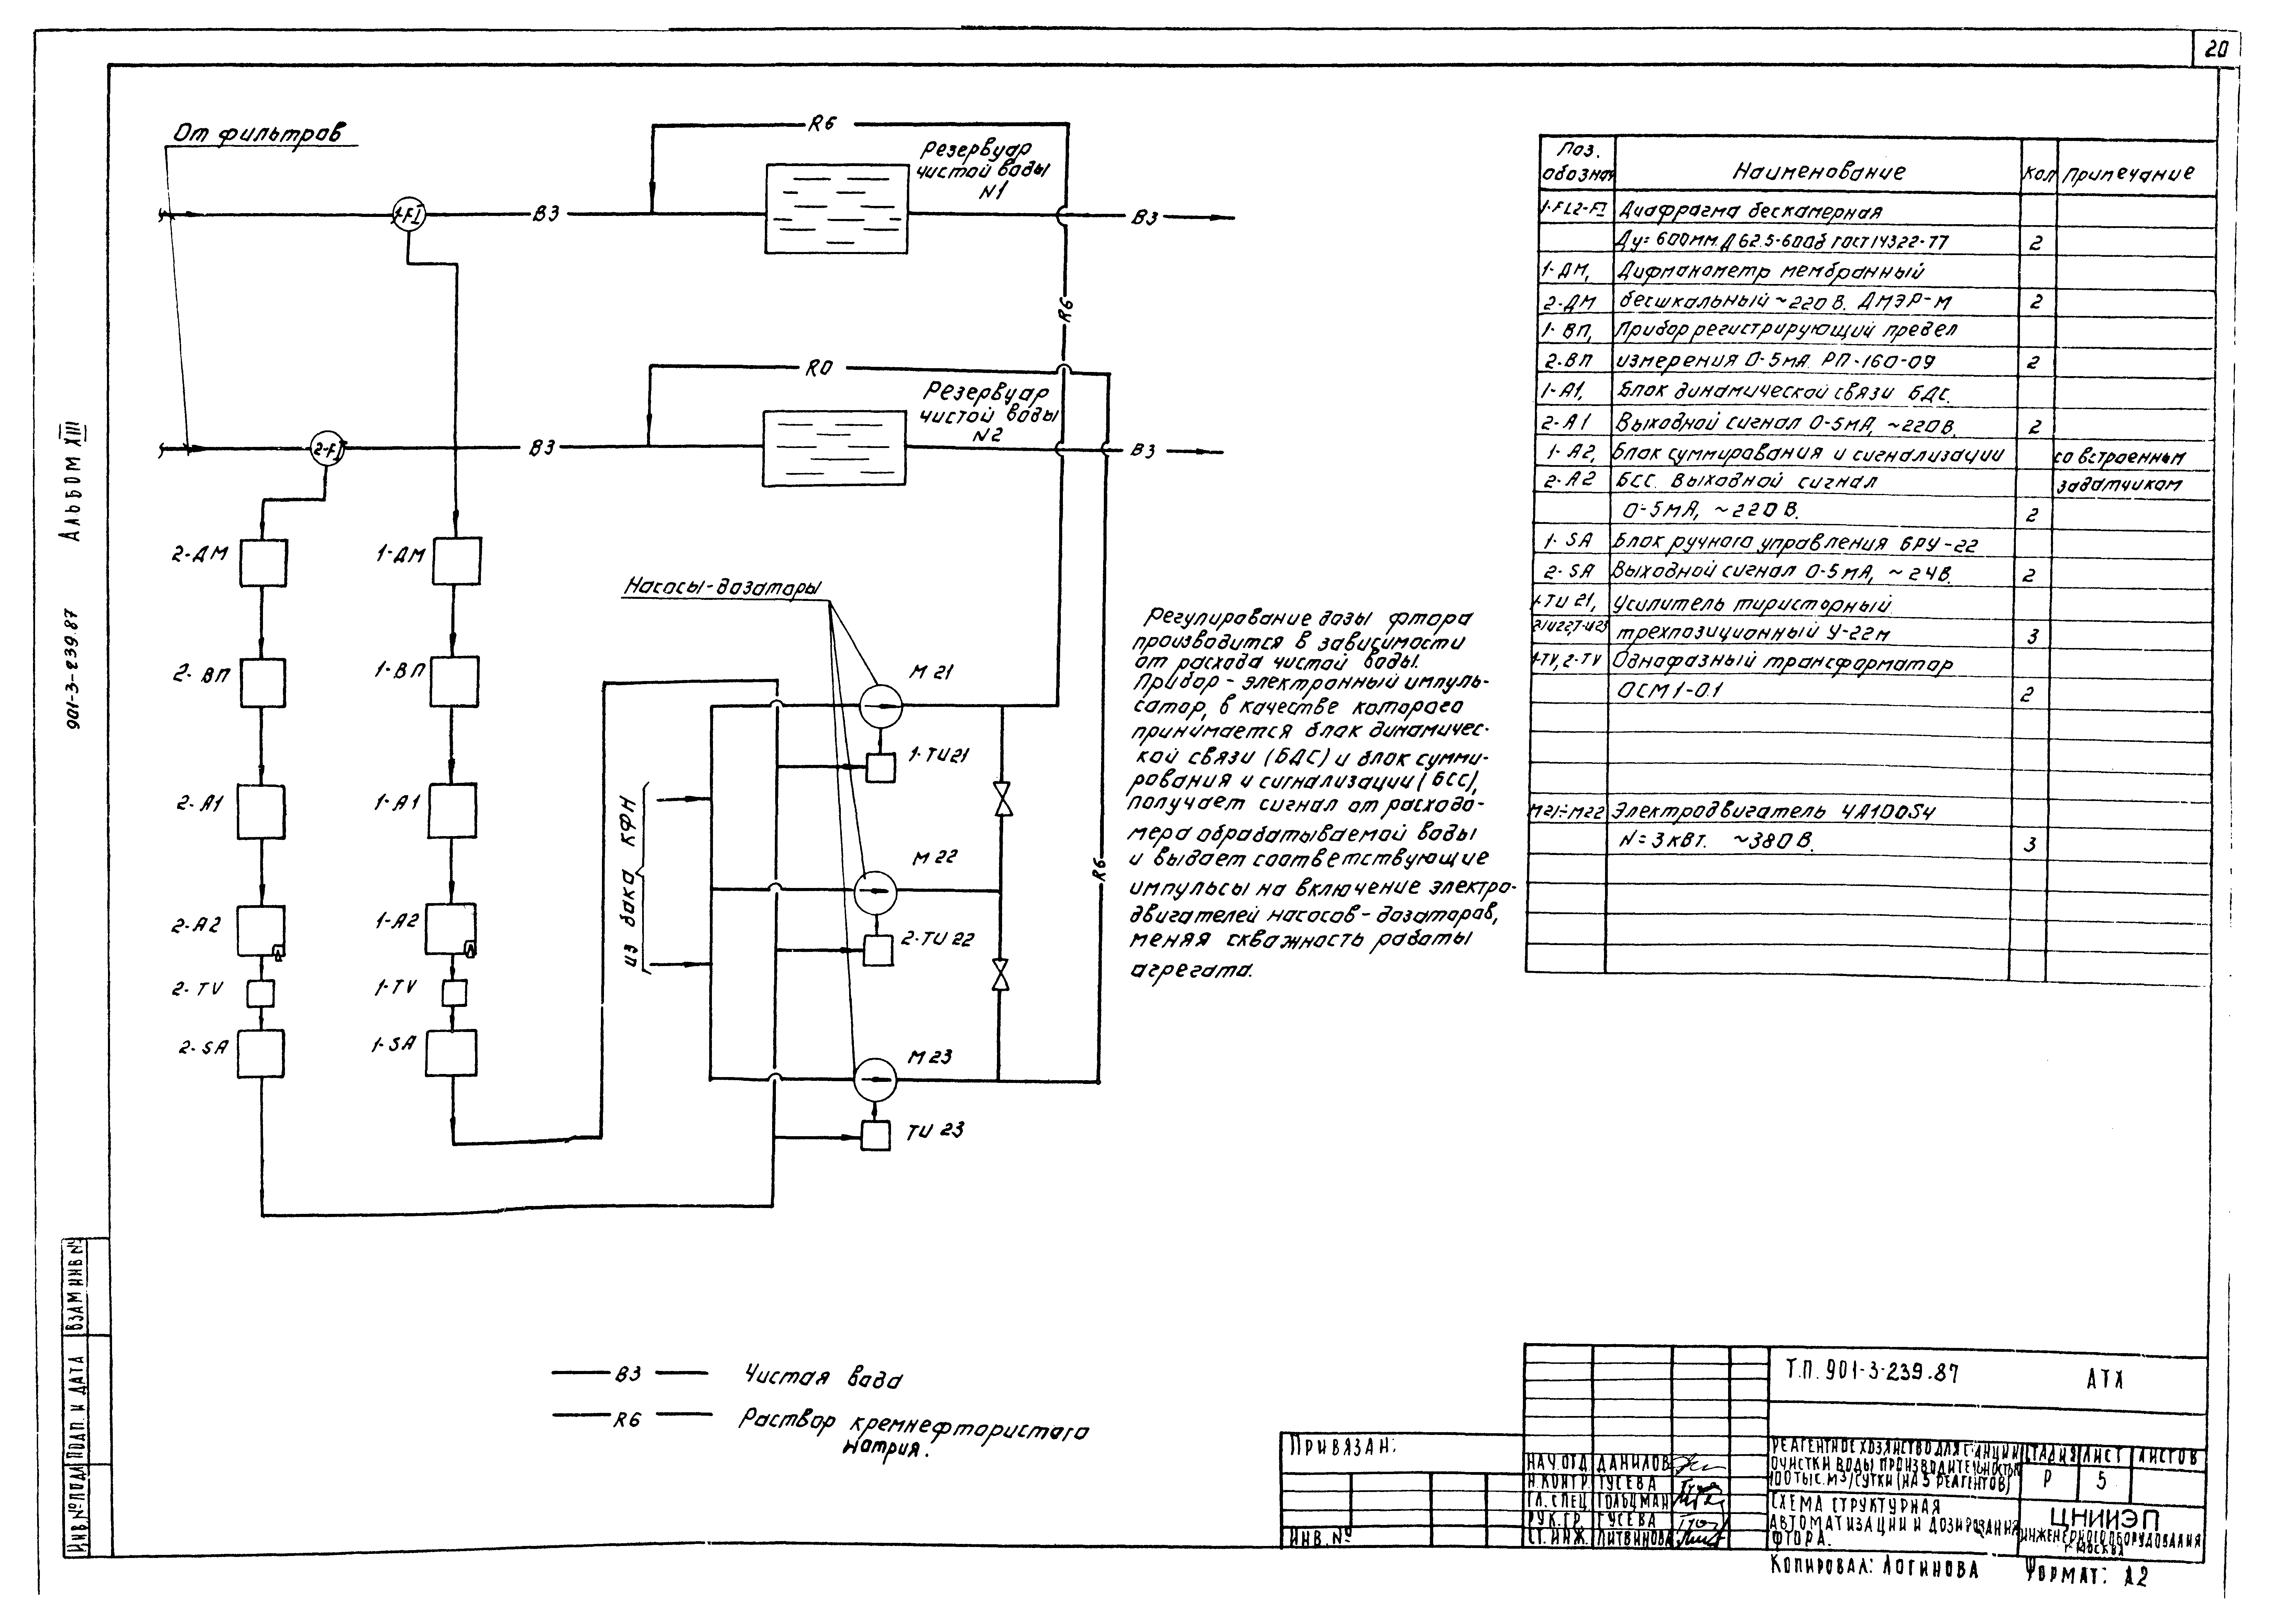 20
От фильтров
R6
Резервуар
чистой воды
N1
1-FI
В3
В3
R6
R0
Резервуар
чистой воды
N2
2-FI
В3
В3
2-ДМ
1-ДМ
2-ВП
1-ВП
2-А1
1-А1
2-А2
1-А2
2-TV
1-TV
2-SA
1-SA
Насосы-дозаторы
М 21
1-TU21
М 22
2-TU 22
М 23
TU 23
из бака КФН
R6
Регулирование дозы фтора
производится в зависимости
от расхода чистой воды.
Прибор - электронный импуль-
сатор, в качестве которого
принимается блок динамичес-
кой связи (БДС) и блок сумми-
рования и сигнализации (БСС),
получает сигнал от расходо-
мера обрабатываемой воды
и выдает соответствующие
импульсы на включение электро-
двигателей насосов-дозаторов,
меняя скважность работы
агрегата.
Поз. обознач Наименование Кол Примечание
1-FI,2-FI Диафрагма бескамерная
Ду=600мм. Д 62.5-600б гост 14322-77 2
1-ДМ, Дифманометр мембранный
2-ДМ бесшкальный ~220 В. ДМЭР-М 2
1-ВП, Прибор регистрирующий предел
2-ВП измерения 0-5мА. РП-160-09 2
1-А1, Блок динамической связи БДС.
2-А1 Выходной сигнал 0-5мА, ~220В. 2
1-А2, Блок суммирования и сигнализации со встроенным
2-А2 БСС. Выходной сигнал задатчиком
0-5мА, ~220В. 2
1-SA Блок ручного управления БРУ-22
2-SA Выходной сигнал 0-5мА, ~24В. 2
1-TU 21, Усилитель тиристорный
2TU22,TU23 трехпозиционный У-22м 3
1-TV, 2-TV Однофазный трансформатор
ОСМ1-0.1 2
М21÷М22 Электродвигатель 4А100S4
N=3квт. ~380В. 3
В3 Чистая вода
R6 Раствор кремнефтористого
натрия.
901-3-239.87 Альбом XIII
Инв.№ подл Подп. и дата Взам инв №
Т.П. 901-3-239.87 АТХ
Привязан:
Инв.№
Нач.отд Данилов
Н.контр. Гусева
Гл.спец Гольцман
Рук.гр. Гусева
Ст.инж. Литвинова
Реагентное хозяйство для станции
очистки воды производительностью
100 тыс. м3/сутки (на 5 реагентов)
Стадия Лист Листов
Р 5
Схема структурная
автоматизации и дозирования
фтора.
ЦНИИЭП
инженерного оборудования
г. Москва
Копировал: Логинова Формат: А2